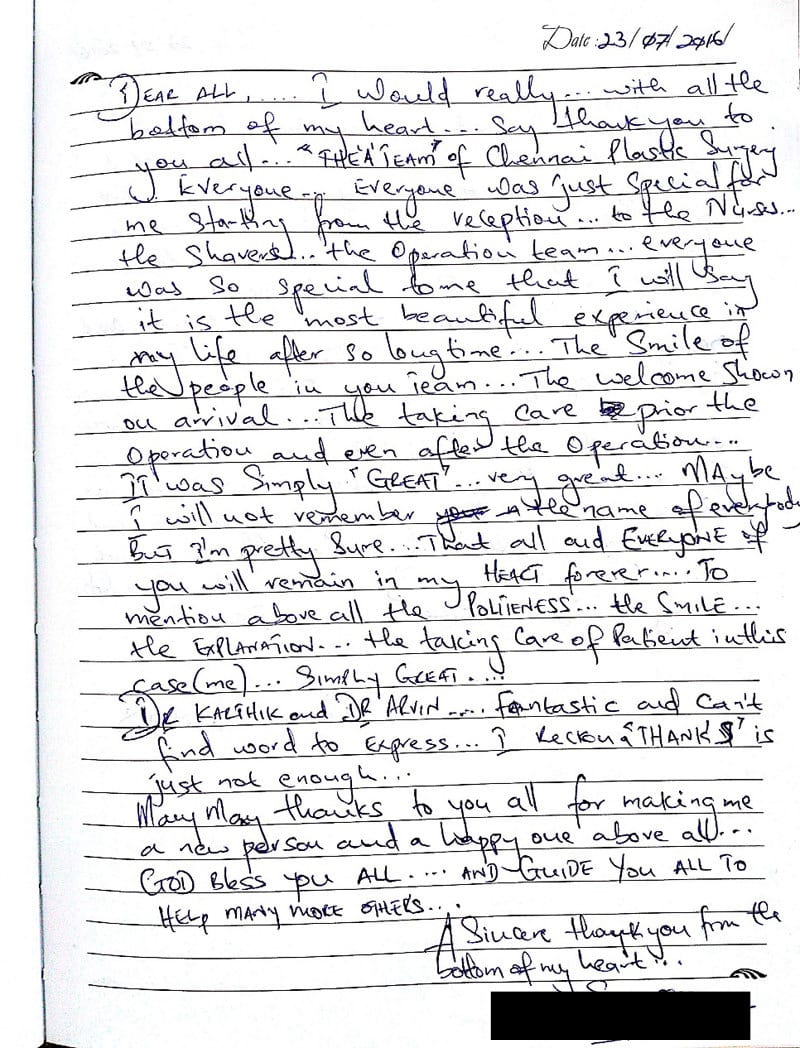 Date: 23/07/2016/
DEAR ALL, .... I would really... with all the
bottom of my heart.... Say thank you to
you all... "THE 'A' TEAM" of Chennai Plastic Surgery
Everyone... Everyone was just Special for
me starting from the reception... to the Nurses...
the Shavers!.. the Operation team... everyone
was so special to me that I will say
it is the most beautiful experience in
my life after so long time... The Smile of
the people in you Team.... The welcome Shown
on arrival... The taking care prior the
Operation and even after the Operation....
IT was Simply "GREAT"... very great.... MAybe
I will not remember the name of everybody
BUT I'm pretty Sure.... That all and EVERYONE of
you will remain in my HEART forever..... TO
mention above all the POLITENESS... the SMILE...
the EXPLANATION.... the taking Care of Patient in this
case (me)... SIMPLY GREAT....
DR KARTHIK and DR ARVIN..... Fantastic and Can't
find word to Express... I Reckon a "THANKS" is
just not enough...
Many Many thanks to you all for making me
a new person and a happy one above all....
GOD Bless you ALL..... AND GUIDE YOU ALL TO
HELP MANY MORE OTHERS....
A Sincere thank you from the
bottom of my heart!...